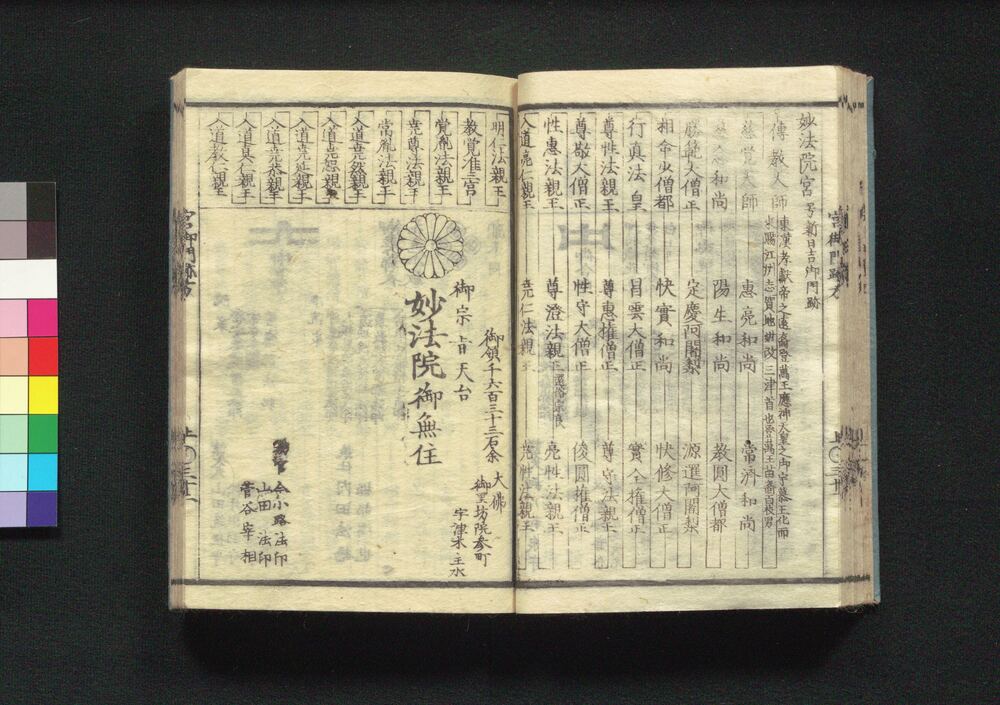 妙法院宮
号新日吉御門跡
傳教大師
東漢孝獻帝之遠裔登萬王應神天皇之御宇慕王化而
來賜江州志賀地姓改三津首也
慈覺大師
惠亮和尚
常濟和尚
慈念和尚
陽生和尚
教圓大僧都
大僧正
定慶阿闍梨
源選阿闍梨
相命少僧都
快實和尚
快修大僧正
行真法皇
昌雲大僧正
實全権僧正
尊性法親王
尊惠権僧正
尊守法親王
尊敬大僧正
性守大僧正
俊圓権僧正
性惠法親王
尊澄法親王
亮性法親王
入道亮仁親王
尭仁法親王
尭性法親王
明仁法親王
教覚准三宮
覚胤法親王
尭尊法親王
常胤法親王
入道尭然親王
入道尭恕親王
入道尭延親王
入道尭恭親王
入道真仁親王
入道教仁親王
大佛
御里坊院参町
宇津木主水
御領千六百三十三石余
御宗旨天台
妙法院御無住
今小路法印
山田法印
菅谷宰相
宮御門跡方
宮御門跡方